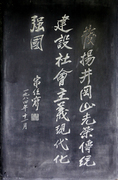 發揚井岡山光榮傳統
建設社會主義現代化
强國
宋任窮
一九八四年十一月